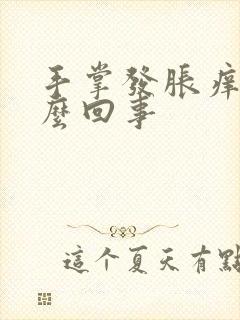 手掌發脹痒
麼回事
這个夏天有點